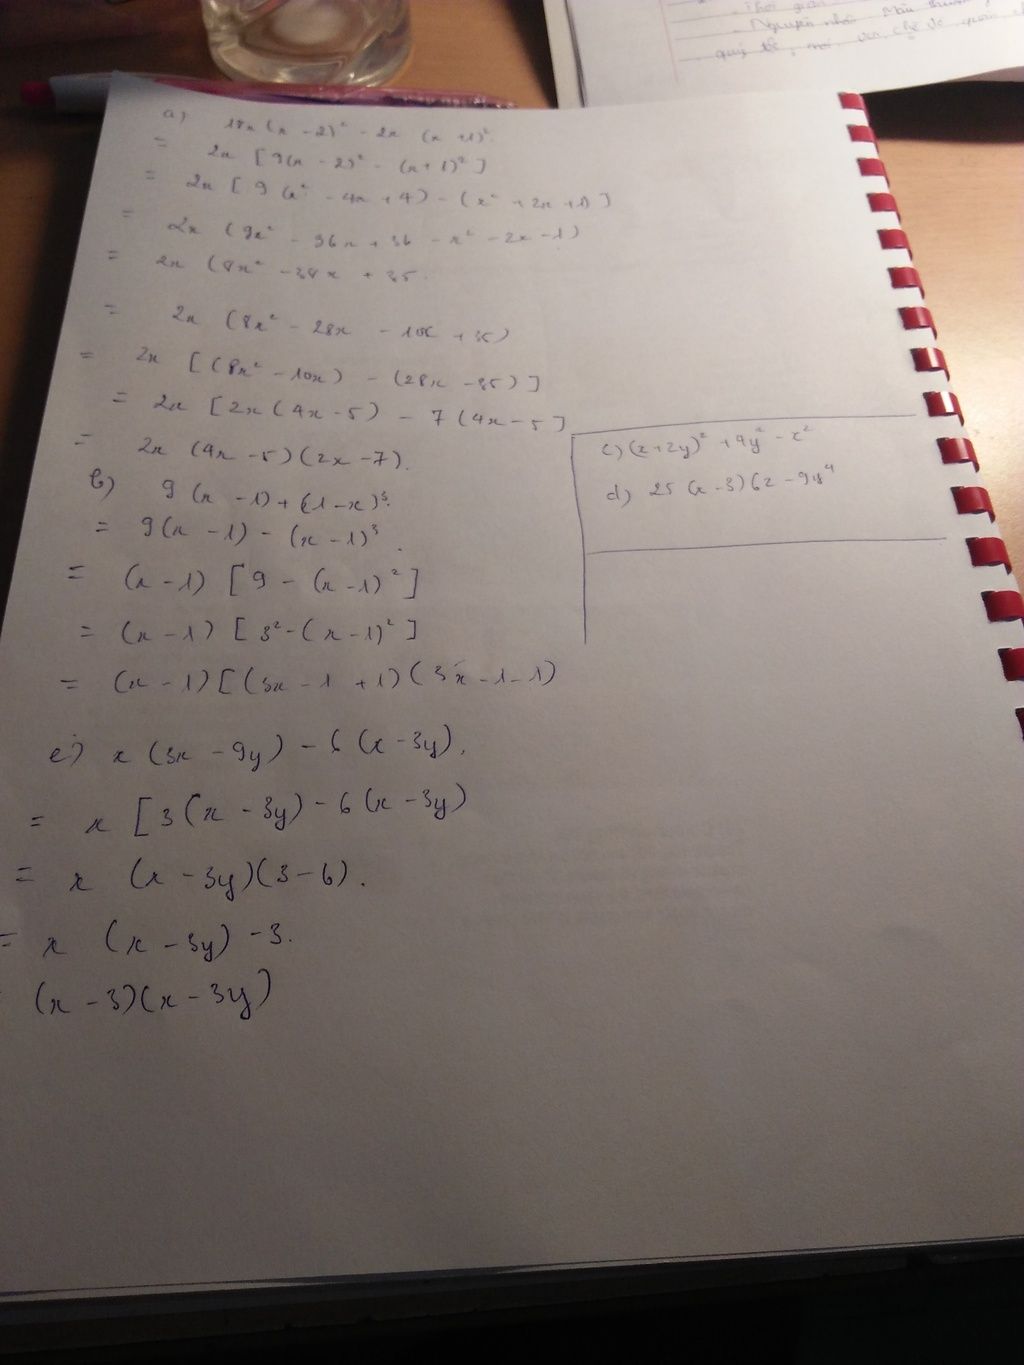 Thời gian
Nguyên nhân Mâu thuẫn
a) 18x (x - 2)² - 2x (x + 1)².
= 2x [ 9(x - 2)² - (x + 1)² ]
= 2x [ 9 (x² - 4x + 4) - (x² + 2x + 1) ]
= 2x (9x² - 36x + 36 - x² - 2x - 1)
= 2x (8x² - 38x + 35.
= 2x (8x² - 28x - 10x + 35)
= 2x [ (8x² - 10x) - (28x - 35) ]
= 2x [ 2x (4x - 5) - 7 (4x - 5 ]
= 2x (4x - 5) (2x - 7).
b) 9 (x - 1) + (1 - x)³.
= 9(x - 1) - (x - 1)³.
= (x - 1) [ 9 - (x - 1)² ]
= (x - 1) [ 3² - (x - 1)² ]
= (x - 1) [ (3x - 1 + 1) (3x - 1 - 1)
c) (x + 2y)² + 4y² - x²
d) 25 (x - 3)(6z - 9y⁴
e) x (3x - 9y) - 6 (x - 3y).
= x [ 3 (x - 3y) - 6 (x - 3y)
= x (x - 3y)(3 - 6).
= x (x - 3y) - 3.
(x - 3)(x - 3y)